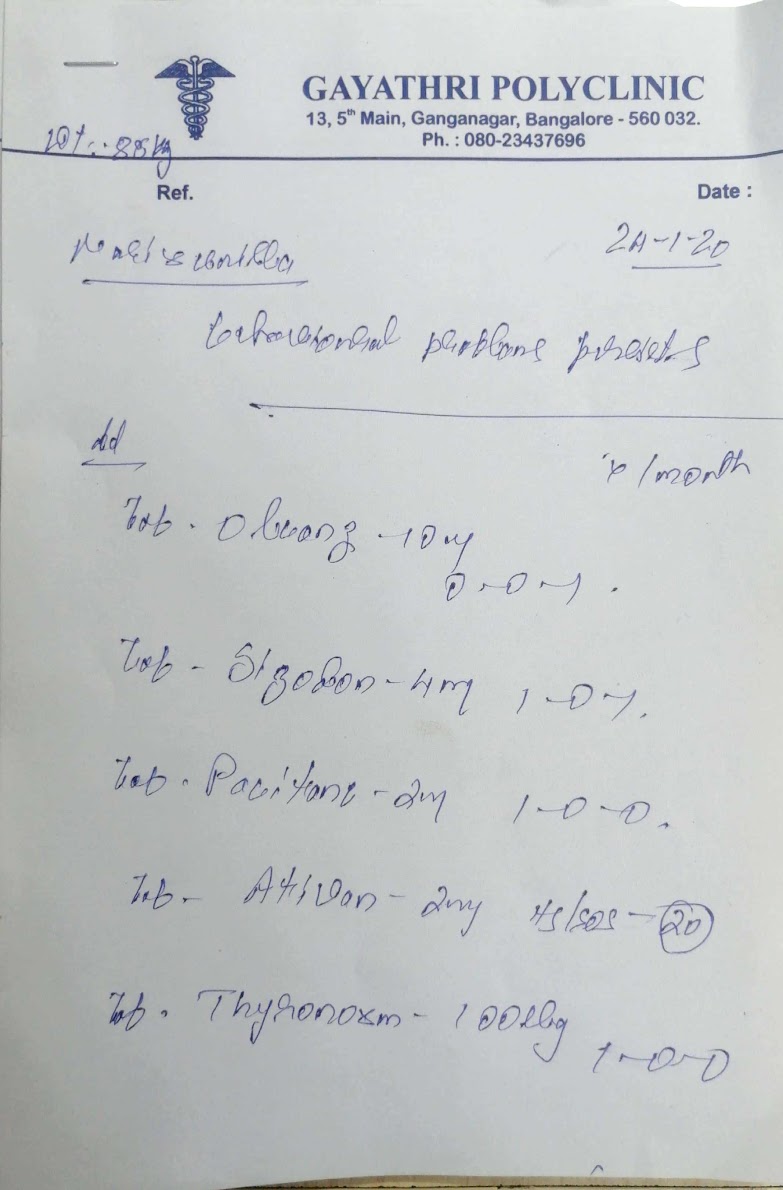 GAYATHRI POLYCLINIC
13, 5th Main, Ganganagar, Bangalore - 560 032.
Ph. : 080-23437696
Wt :- 88kg
Ref. Date :
24-1-20
behavioural problems
Ad x 1month
Tab. Oleanz - 10mg
0-0-1.
Tab - Sizodon - 4mg 1-0-1.
Tab. Pacitane - 2mg 1-0-0.
Tab - Ativan - 2mg HS/SOS - 20
Tab. Thyronorm - 100mcg
1-0-0